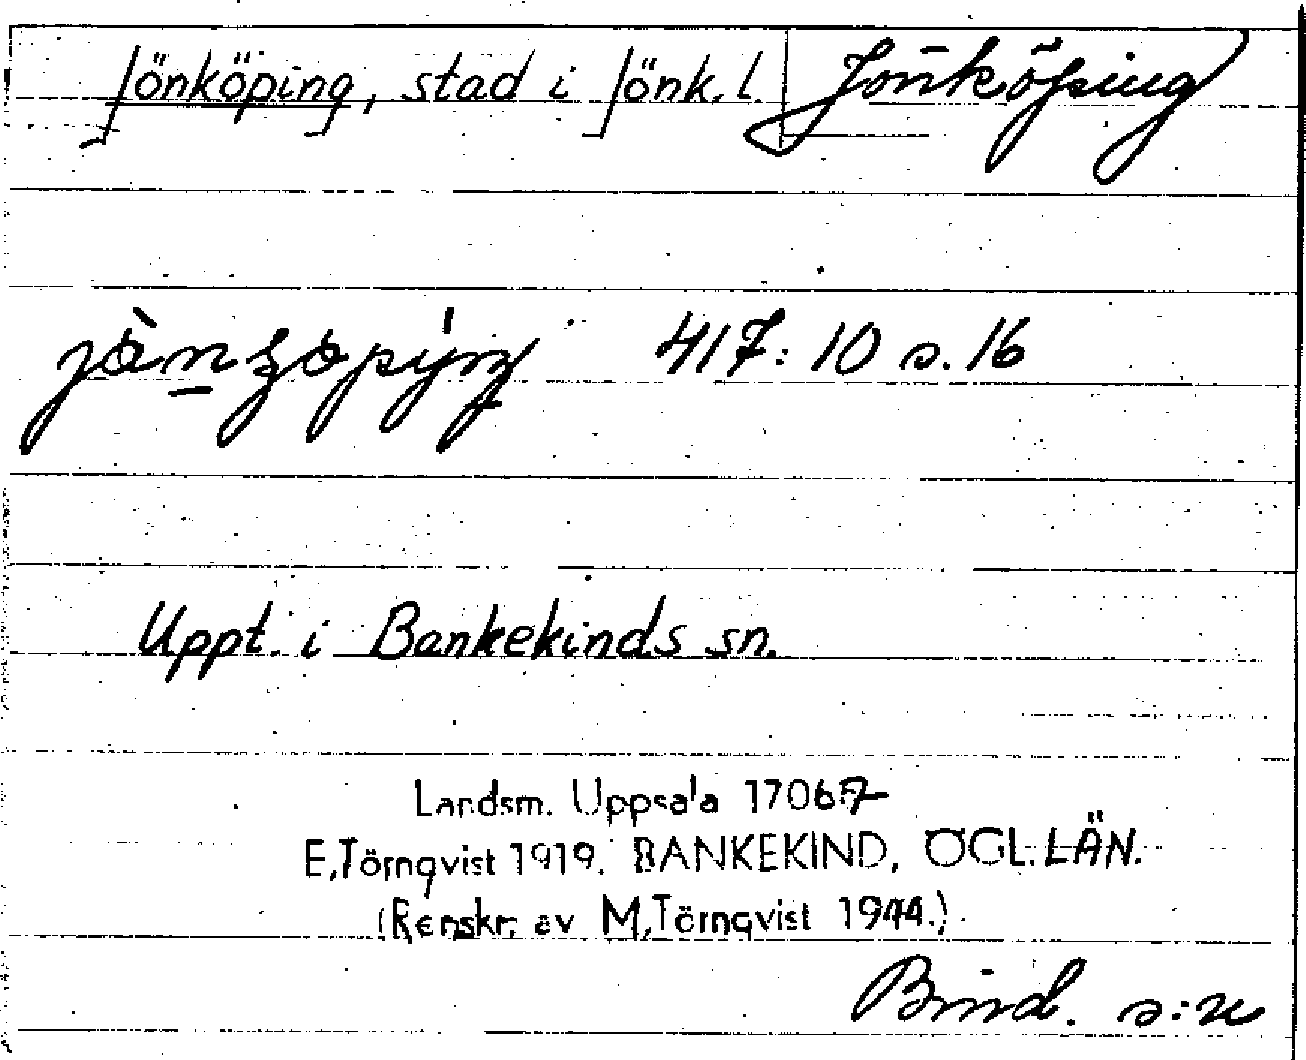 Jönköping, stad i Jönk. l. Jönköping
417:10 s. 16
Uppt. i Bankekinds sn.
Landsm. Uppsala 17067
E. Törnqvist 1919. BANKEKIND, ÖGL. LÄN.
(Renskr. av M. Törnqvist 1944.)
s:n